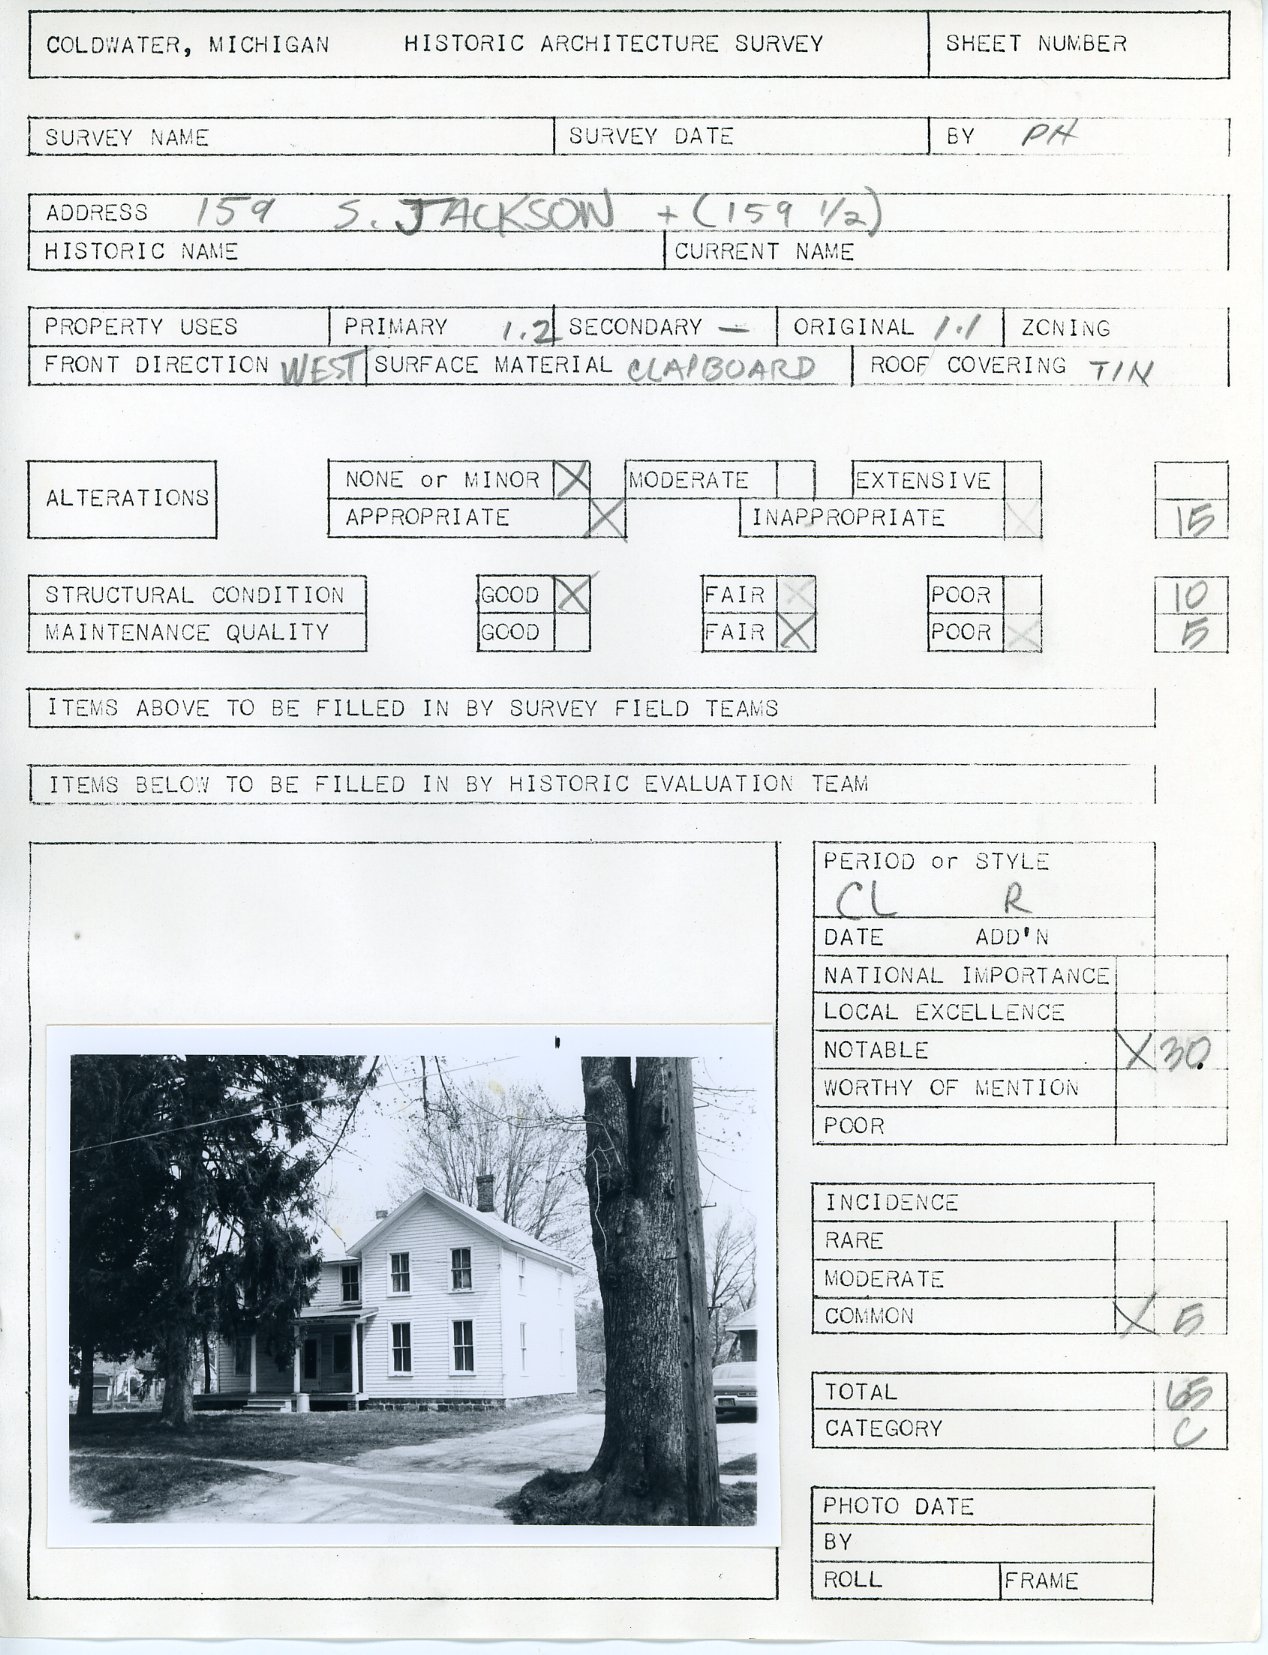 COLDWATER, MICHIGAN HISTORIC ARCHITECTURE SURVEY SHEET NUMBER
SURVEY NAME SURVEY DATE BY PH
ADDRESS 159 S. JACKSON + (159 1/2)
HISTORIC NAME CURRENT NAME
PROPERTY USES PRIMARY 1.2 SECONDARY — ORIGINAL 1.1 ZONING
FRONT DIRECTION WEST SURFACE MATERIAL CLAPBOARD ROOF COVERING TIN
ALTERATIONS NONE or MINOR X MODERATE EXTENSIVE
APPROPRIATE X INAPPROPRIATE X 15
STRUCTURAL CONDITION GOOD X FAIR X POOR 10
MAINTENANCE QUALITY GOOD FAIR X POOR X 5
ITEMS ABOVE TO BE FILLED IN BY SURVEY FIELD TEAMS
ITEMS BELOW TO BE FILLED IN BY HISTORIC EVALUATION TEAM
PERIOD or STYLE
CL R
DATE ADD'N
NATIONAL IMPORTANCE
LOCAL EXCELLENCE
NOTABLE X 30
WORTHY OF MENTION
POOR
INCIDENCE
RARE
MODERATE
COMMON X 5
TOTAL 65
CATEGORY C
PHOTO DATE
BY
ROLL FRAME